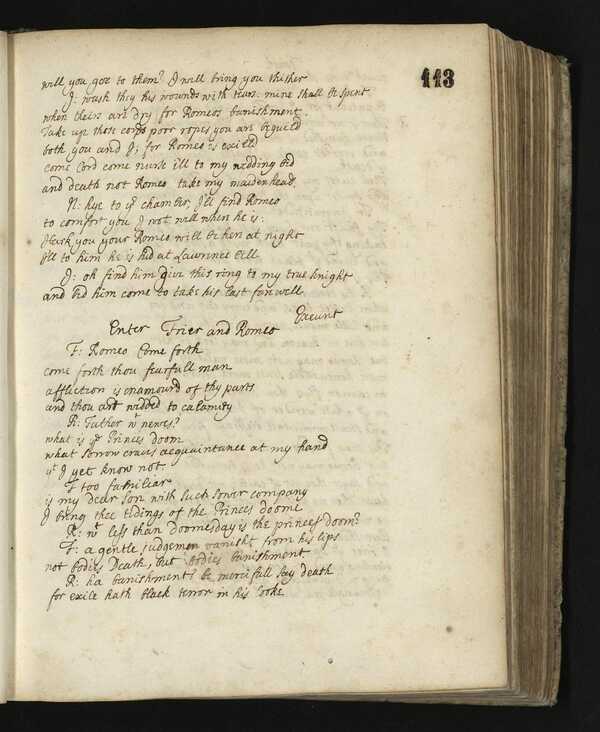 113
will you goe to them? I will bring you thither
J: wash they his wounds with tears: mine shall be spent
when theirs are dry for Romeos banishment.
Take up those cords poor ropes you are beguild
both you and I; for Romeo is exild
come Cord come nurse ill to my wedding bed
and death not Romeo take my maidenhead.
N: hye to yr chamber, I'll find Romeo
to comfort you I wot well where he is:
Heark you your Romeo will be here at night
I'll to him he is hid at Lawrence Cell
J: oh find him give this ring to my true knight
and bid him come to take his last farewell
Exeunt
Enter Frier and Romeo
F: Romeo Come forth
come forth thou fearfull man
affliction is enamourd of thy parts
and thou art wedded to calamity
R: Father w newes?
what is ye Princes doom
what sorrow craves acquaintance at my hand
yt I yet know not
F too familiar
is my dear son with such sowr company
I bring thee tidings of the Princes doome
R: wt less than doomesday is the princes doom?
F: a gentle judgement vanisht from his lips
not bodies Death, but bodies banishment
R: ha banishment? be mercifull say death
for exile hath black terror in his looke